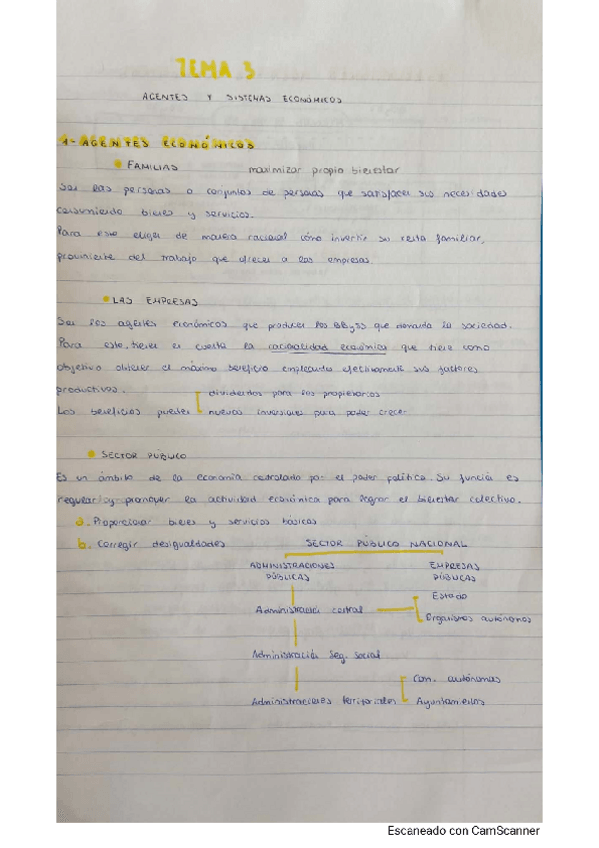 TEMA 3
AGENTES Y SISTEMAS ECONÓMICOS
1- AGENTES ECONÓMICOS
FAMILIAS maximizar propio bienestar
Son las personas o conjuntos de personas que satisfacen sus necesidades
consumiendo bienes y servicios.
Para esto eligen de manera racional cómo invertir su renta familiar,
proviniente del trabajo que ofrecen a las empresas.
LAS EMPRESAS
Son los agentes económicos que producen los BBySS que demanda la sociedad.
Para esto, tienen en cuenta la racionalidad económica que tiene como
objetivo obtener el máximo beneficio empleando efectivamente sus factores
productivos.
dividendos para los propietarios
Los beneficios pueden
nuevas inversiones para poder crecer
SECTOR PÚBLICO
Es un ámbito de la economía controlado por el poder político. Su función es
regular y promover la actividad económica para lograr el bienestar colectivo.
a. Proporcionar bienes y servicios básicos
b. Corregir desigualdades SECTOR PÚBLICO NACIONAL
ADMINISTRACIONES EMPRESAS
PÚBLICAS PÚBLICAS
Estado
Administración central
Organismos autónomos
Administración Seg. social
Com. autónomas
Administraciones territoriales Ayuntamientos
Escaneado con CamScanner